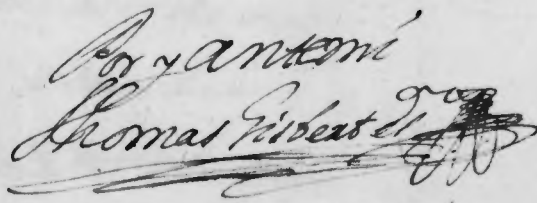 Por y antemi
Thomas Gisbert es.no